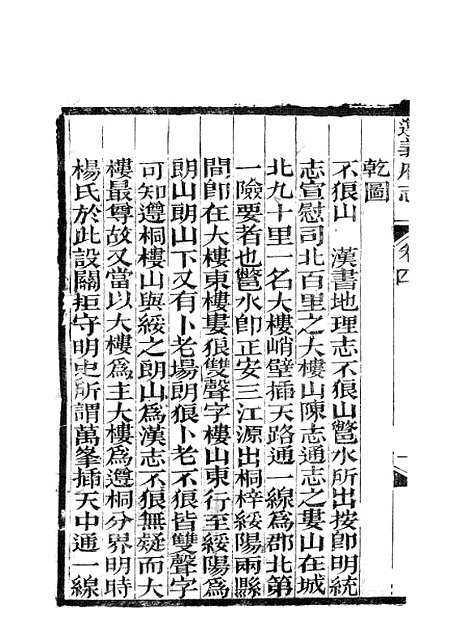 遵義府志
卷四
一
乾圖
不狼山　漢書地理志不狼山鄨水所出按卽明統
志宣慰司北百里之大樓山陳志通志之婁山在城
北九十里一名大樓峭壁插天路通一線爲郡北第
一險要者也鄨水卽正安三江源出桐梓綏陽兩縣
間卽在大樓東樓婁狼雙聲字樓山東行至綏陽爲
朗山朗山下又有卜老場朗狼卜老不狼皆雙聲字
可知遵桐樓山與綏之朗山爲漢志不狼無疑而大
樓最尊故又當以大樓爲主大樓爲遵桐分界明時
楊氏於此設關拒守明史所謂萬峯插天中通一線